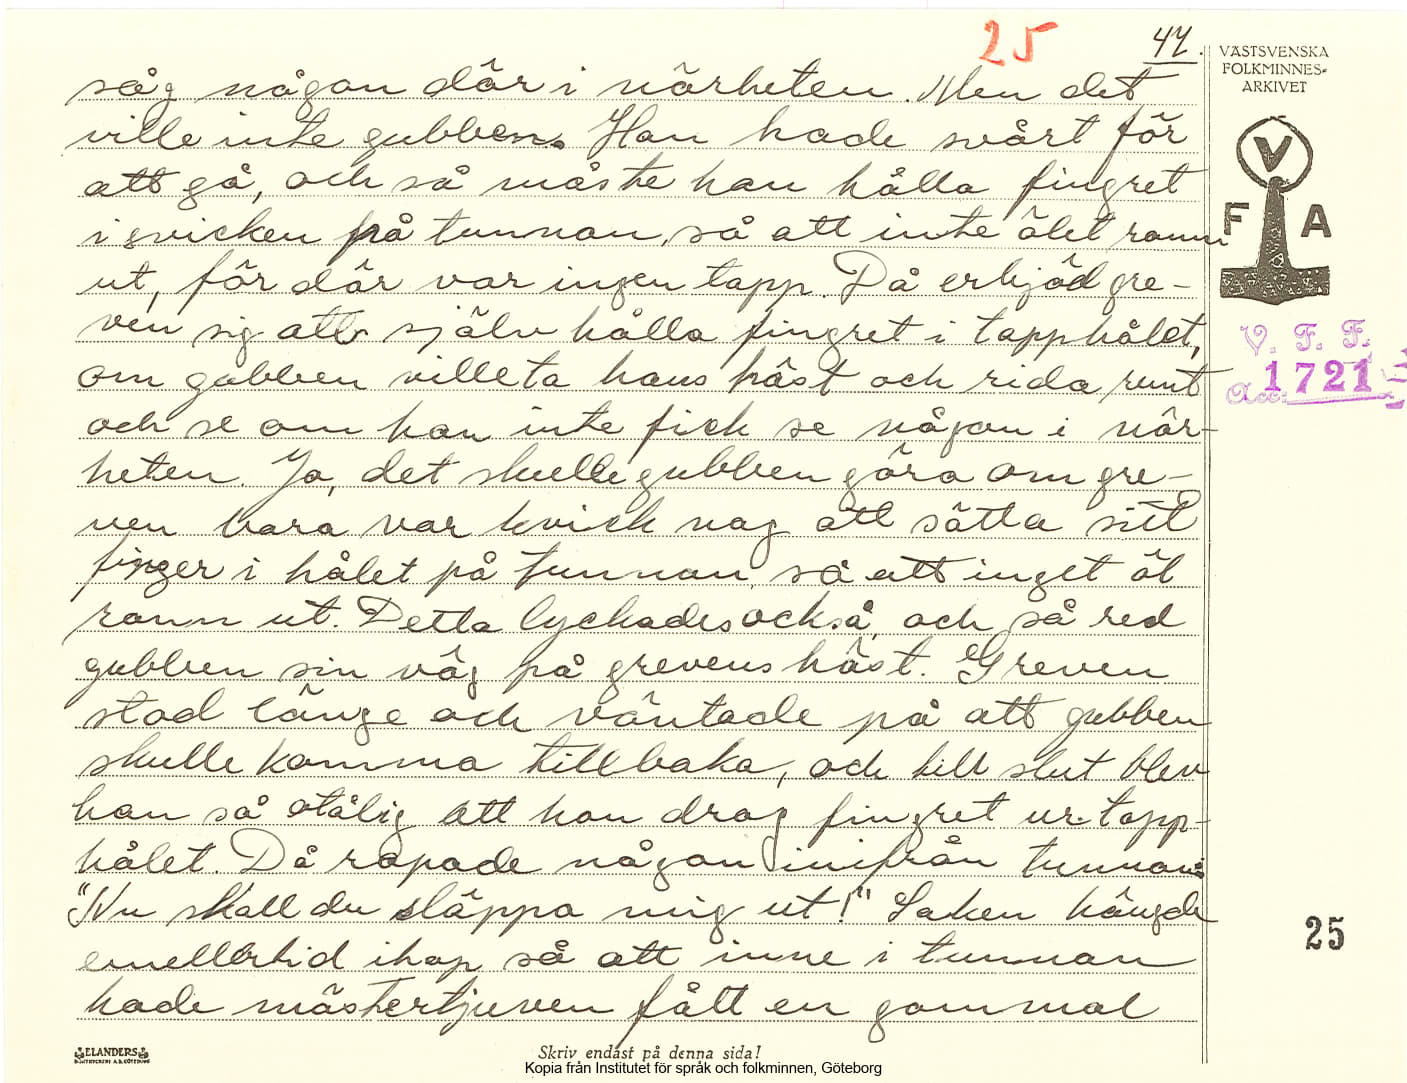 25
47.
VÄSTSVENSKA
FOLKMINNES-
ARKIVET
såg någon där i närheten. Men det
ville inte gubben. Han hade svårt för
att gå, och så måste han hålla fingret
i svicken på tunnan, så att inte ölet rann
ut, för där var ingen tapp. Då erbjöd gre-
ven sig att själv hålla fingret i tapphålet,
om gubben ville ta hans häst och rida runt
och se om han inte fick se någon i när-
heten. Ja, det skulle gubben göra om gre-
ven bara var kvick nog att sätta sitt
finger i hålet på tunnan så att inget öl
rann ut. Detta lyckades också, och så red
gubben sin väg på grevens häst. Greven
stod länge och väntade på att gubben
skulle komma tillbaka, och till slut blev
han så otålig att han drog fingret ur tapp-
hålet. Då ropade någon inifrån tunnan:
"Nu skall du släppa mig ut!" Saken hängde
emellertid ihop så att inne i tunnan
hade mästertjuven fått en gammal
V
F A
V. F. F.
Acc: 1721
25
ELANDERS
Skriv endast på denna sida!
Kopia från Institutet för språk och folkminnen, Göteborg